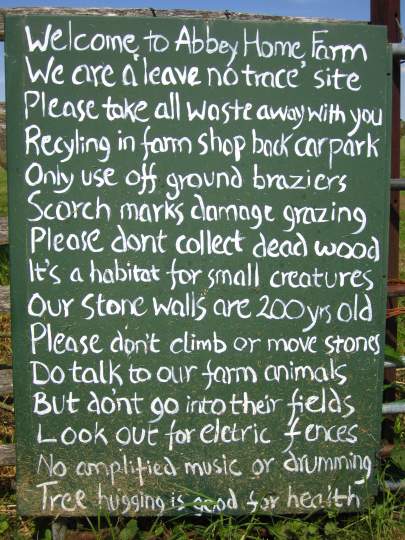 Welcome to Abbey Home Farm
We are a 'leave no trace' site
Please take all waste away with you
Recyling in farm shop back carpark
Only use off ground braziers
Scorch marks damage grazing
Please dont collect dead wood
It's a habitat for small creatures
Our stone walls are 200 yrs old
Please don't climb or move stones
Do talk to our farm animals
But dont go into their fields
Look out for elctric fences
No amplified music or drumming
Tree hugging is good for health